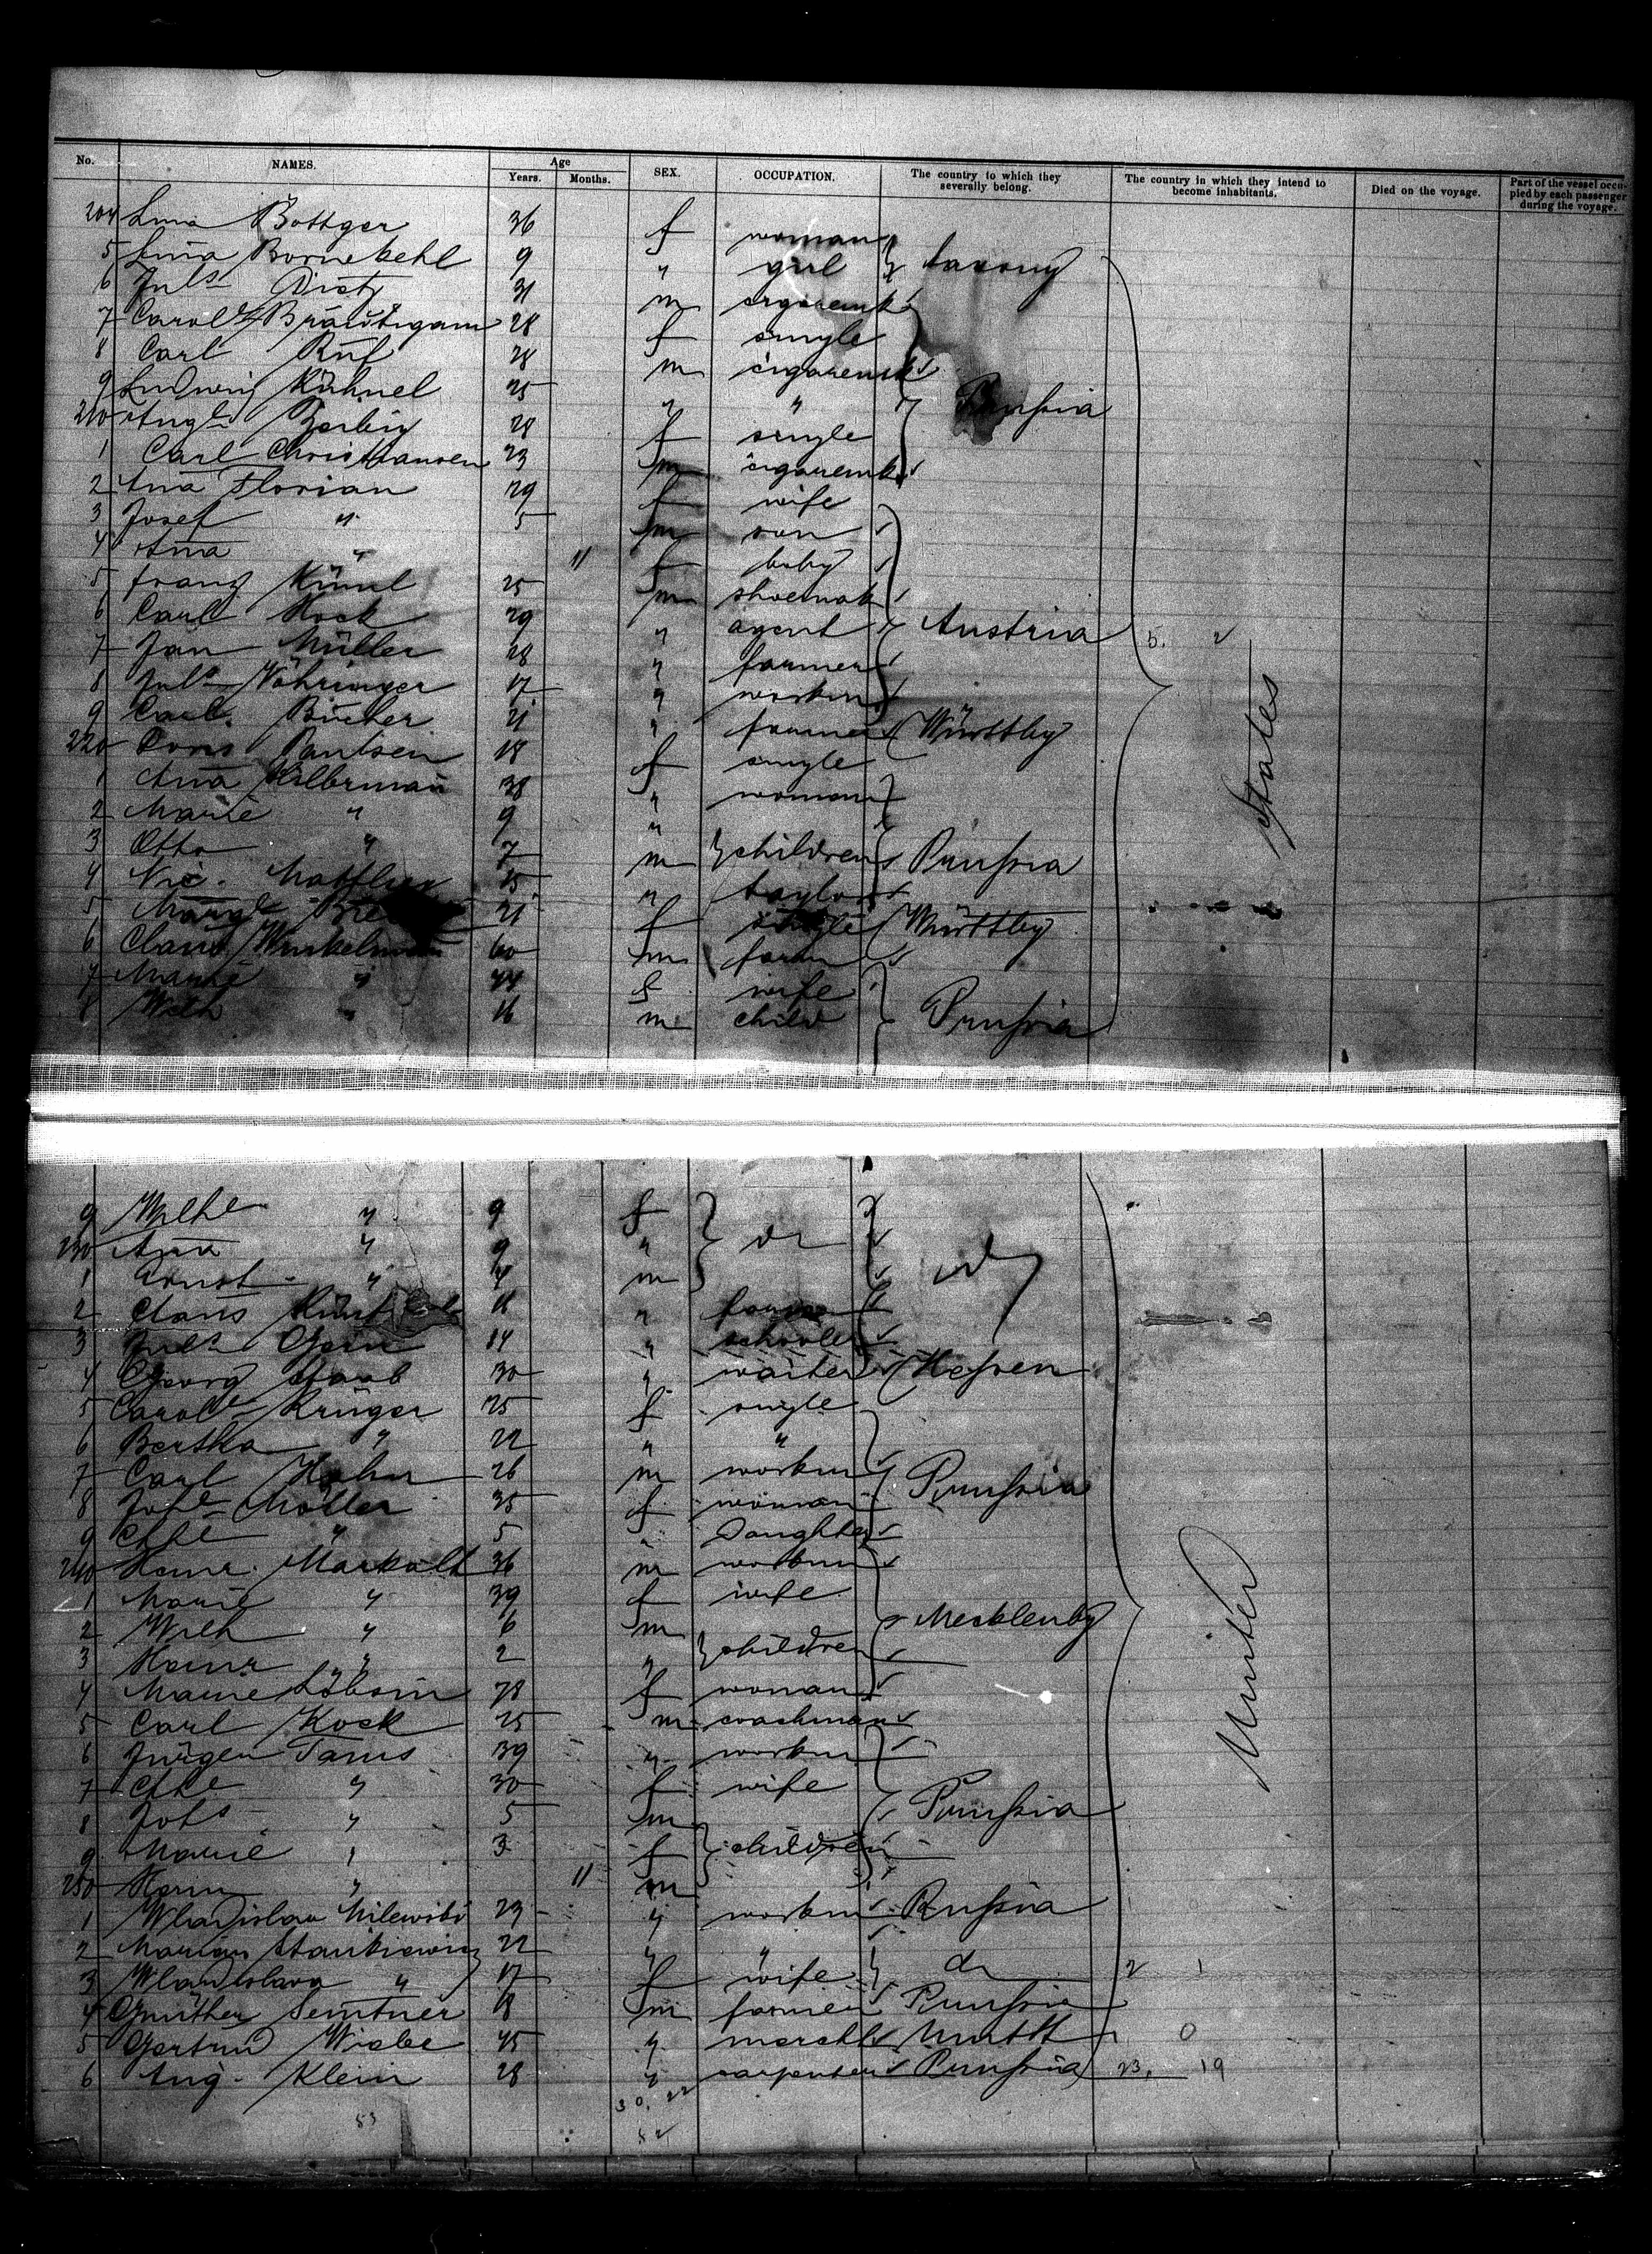 No. NAMES. Age Years. Months. SEX. OCCUPATION. The country to which they severally belong. The country in which they intend to become inhabitants. Died on the voyage. Part of the vessel occupied by each passenger during the voyage.
204 Lina Bottger 36 f woman
5 Lina Bornekehl 9 " girl Saxony
6 Juls Dietz 31 m cigaremk
7 Carole Bräutigam 28 f single
8 Carl Ruf 28 m cigaremk
9 Ludwig Kühnel 25 " " Prussia
210 Augte Zerbig 28 f single
1 Carl Christiansen 23 m cigaremk
2 Ana Florian 29 f wife
3 Josef " 5 m son
4 Ana " 11 f baby
5 Franz 25 m shoemak
6 Carl Kock 29 " agent Austria 5. 2
7 Jan Müller 28 " farmer
8 Juls Vöhringer 17 " workm
9 Carl Bücher 21 " farmer Württbg
220 Doris Paulsen 18 f single
1 Ana Hilbrman 38 " woman
2 Marie " 9 "
3 Otto " 7 m children Prussia
4 Nic. 15 " taylor
5 21 f single Württbg
6 Claus Winkelman 60 m farm
7 Marie " 44 f wife
8 Wilh " 16 m child Prussia
States
9 Wilhe " 9 f
230 Ana " 9 " do do
1 Ernst " 4 m
2 Claus " farmer
3 Juls 14 " schooler
4 Georg Staab 30 " waiter Hessen
5 Carole Krüger 25 f single
6 Bertha " 22 " "
7 Carl Hahn 26 m workm Prussia
8 Johe Möller 35 f woman
9 " 5 " Daughter
240 Heinr. Markolt 36 m workm
1 Marie " 39 f wife
2 Wilh " 6 m Mecklenbg
3 Heinr " 2 " children
4 Marie 78 f woman
5 Carl Kock 25 m coachman
6 Jürgen Tams 39 " workm
7 " 30 f wife
8 Johs " 5 m Prussia
9 Marie " 3 f children
250 Herm " 11 m
1 Wladislaw Milewski 23 " workm Russia
2 Marian Stankiewicz 22 " "
3 Wladislawa " 17 f wife do 2 1
4 Günther Semtner 18 m farmer Prussia
5 Wiebe 45 " merch Württ 1 0
6 Aug. Klein 28 " carpenter Prussia 23. 19
United
30. 22
53
52